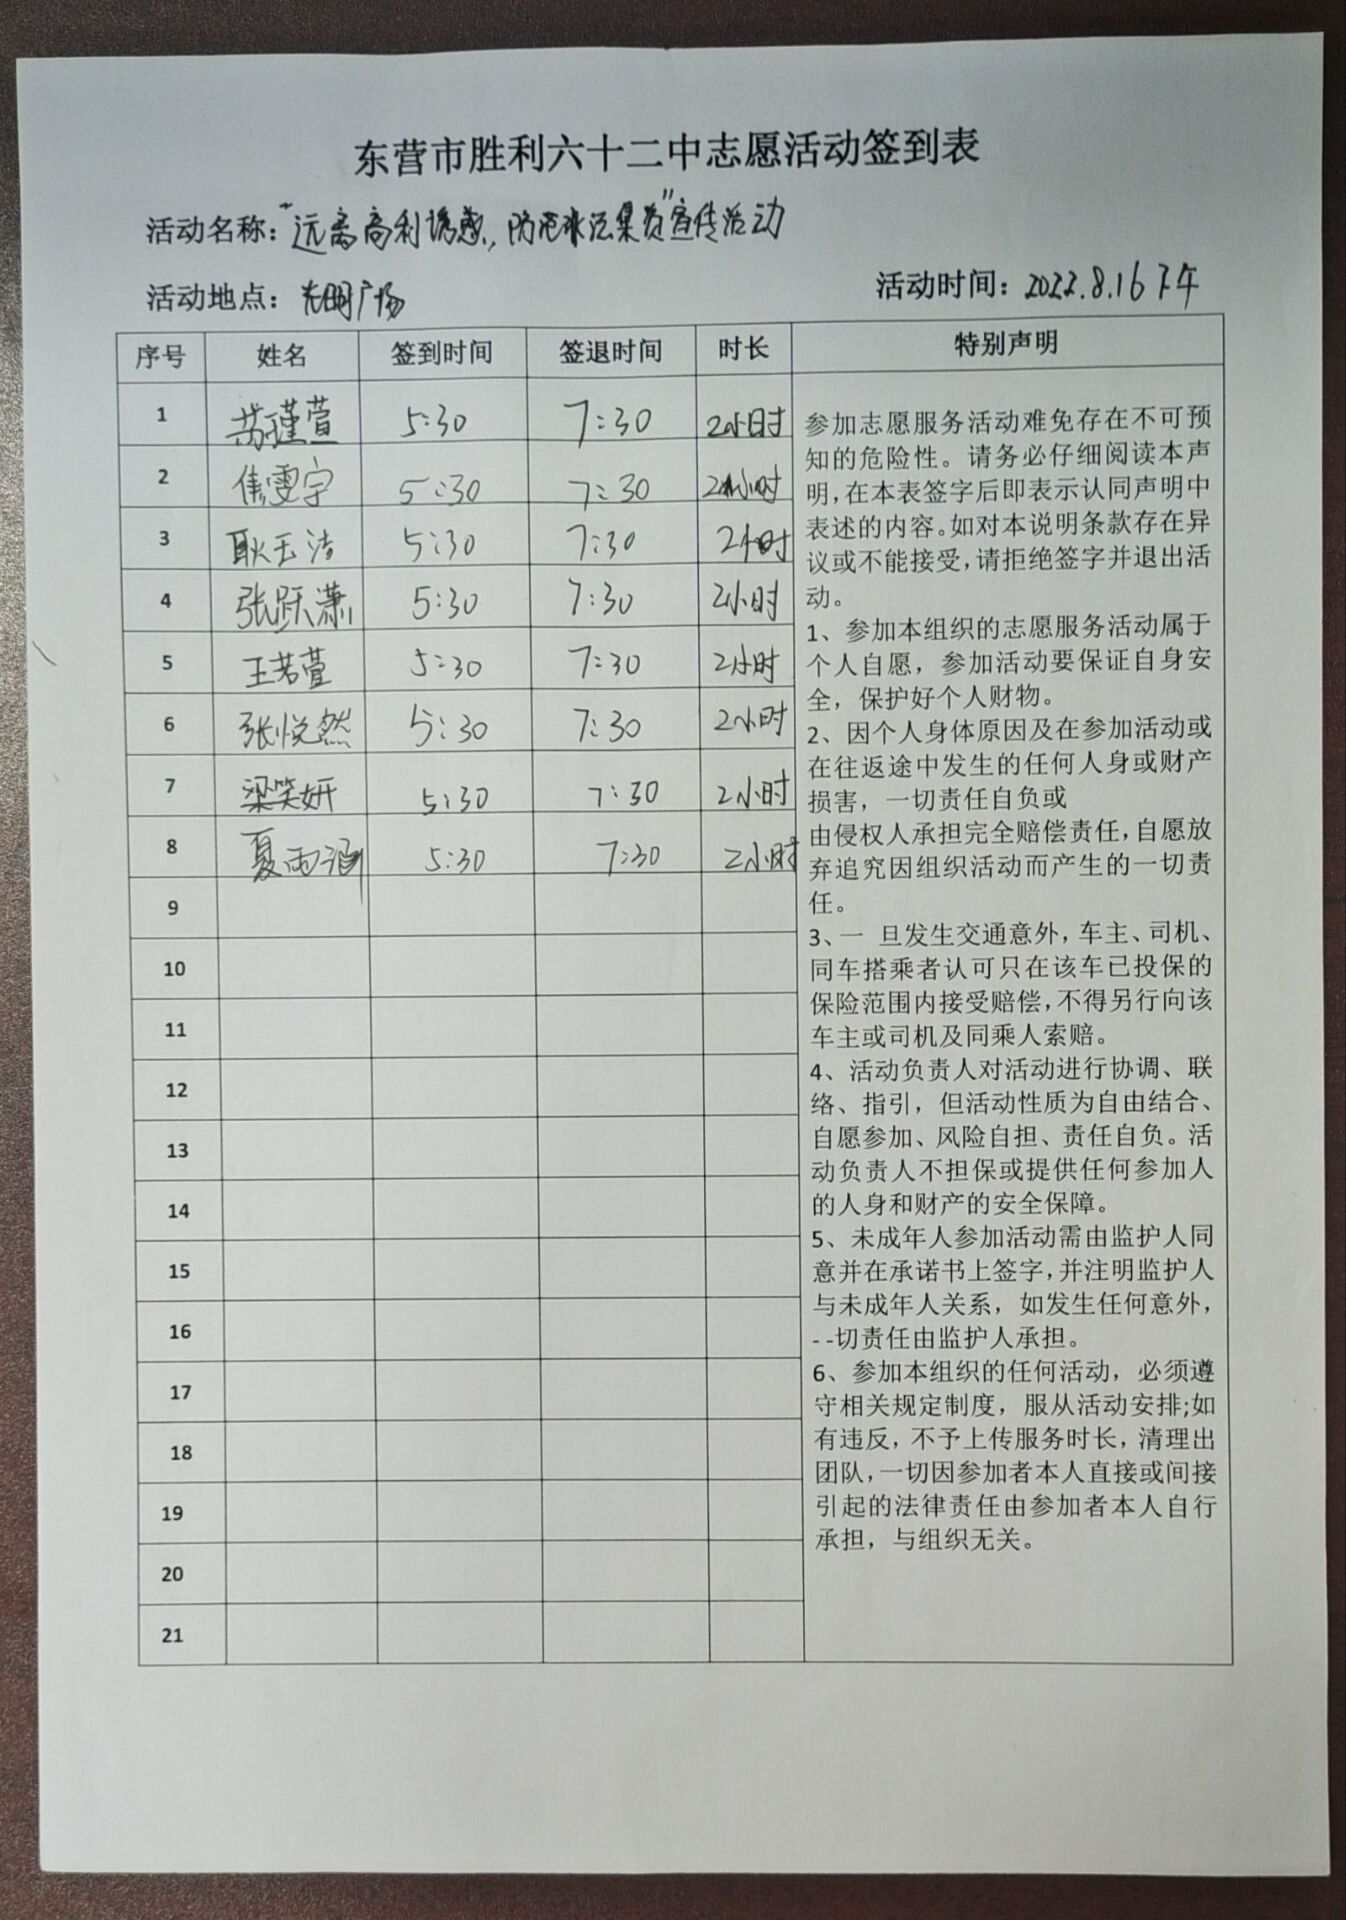 东营市胜利六十二中志愿活动签到表
活动名称："远离高利诱惑，防范非法集资"宣传活动
活动地点：光明广场
活动时间：2022.8.16下午
序号 姓名 签到时间 签退时间 时长 特别声明
1 苏瑾萱 5:30 7:30 2小时
2 焦雯宇 5:30 7:30 2小时
3 耿玉洁 5:30 7:30 2小时
4 张跃潇 5:30 7:30 2小时
5 王若萱 5:30 7:30 2小时
6 张悦然 5:30 7:30 2小时
7 梁笑妍 5:30 7:30 2小时
8 夏雨涵 5:30 7:30 2小时
9
10
11
12
13
14
15
16
17
18
19
20
21
参加志愿服务活动难免存在不可预
知的危险性。请务必仔细阅读本声
明，在本表签字后即表示认同声明中
表述的内容。如对本说明条款存在异
议或不能接受，请拒绝签字并退出活
动。
1、参加本组织的志愿服务活动属于
个人自愿，参加活动要保证自身安
全，保护好个人财物。
2、因个人身体原因及在参加活动或
在往返途中发生的任何人身或财产
损害，一切责任自负或
由侵权人承担完全赔偿责任，自愿放
弃追究因组织活动而产生的一切责
任。
3、一 旦发生交通意外，车主、司机、
同车搭乘者认可只在该车已投保的
保险范围内接受赔偿，不得另行向该
车主或司机及同乘人索赔。
4、活动负责人对活动进行协调、联
络、指引，但活动性质为自由结合、
自愿参加、风险自担、责任自负。活
动负责人不担保或提供任何参加人
的人身和财产的安全保障。
5、未成年人参加活动需由监护人同
意并在承诺书上签字，并注明监护人
与未成年人关系，如发生任何意外，
--切责任由监护人承担。
6、参加本组织的任何活动，必须遵
守相关规定制度，服从活动安排;如
有违反，不予上传服务时长，清理出
团队，一切因参加者本人直接或间接
引起的法律责任由参加者本人自行
承担，与组织无关。